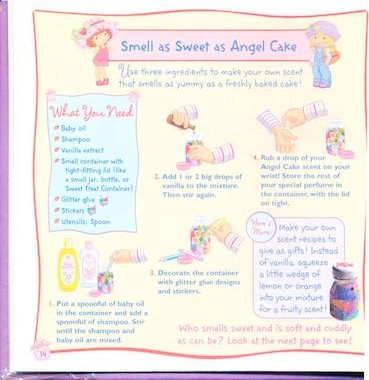 Smell as Sweet as Angel Cake
Use three ingredients to make your own scent
that smells as yummy as a freshly baked cake!
What You Need
Baby oil
Shampoo
Vanilla extract
Small container with
tight-fitting lid (like
a small jar, bottle, or
Sweet Treat Container)
Glitter glue
Stickers
Utensils: Spoon
1. Put a spoonful of baby oil
in the container and add a
spoonful of shampoo. Stir
until the shampoo and
baby oil are mixed.
2. Add 1 or 2 big drops of
vanilla to the mixture.
Then stir again.
3. Decorate the container
with glitter glue designs
and stickers.
4. Rub a drop of your
Angel Cake scent on your
wrist! Store the rest of
your special perfume in
the container, with the lid
on tight.
Here's
More!
Make your own
scent recipes to
give as gifts! Instead
of vanilla, squeeze
a little wedge of
lemon or orange
into your mixture
for a fruity scent!
Who smells sweet and is soft and cuddly
as can be? Look at the next page to see!
14